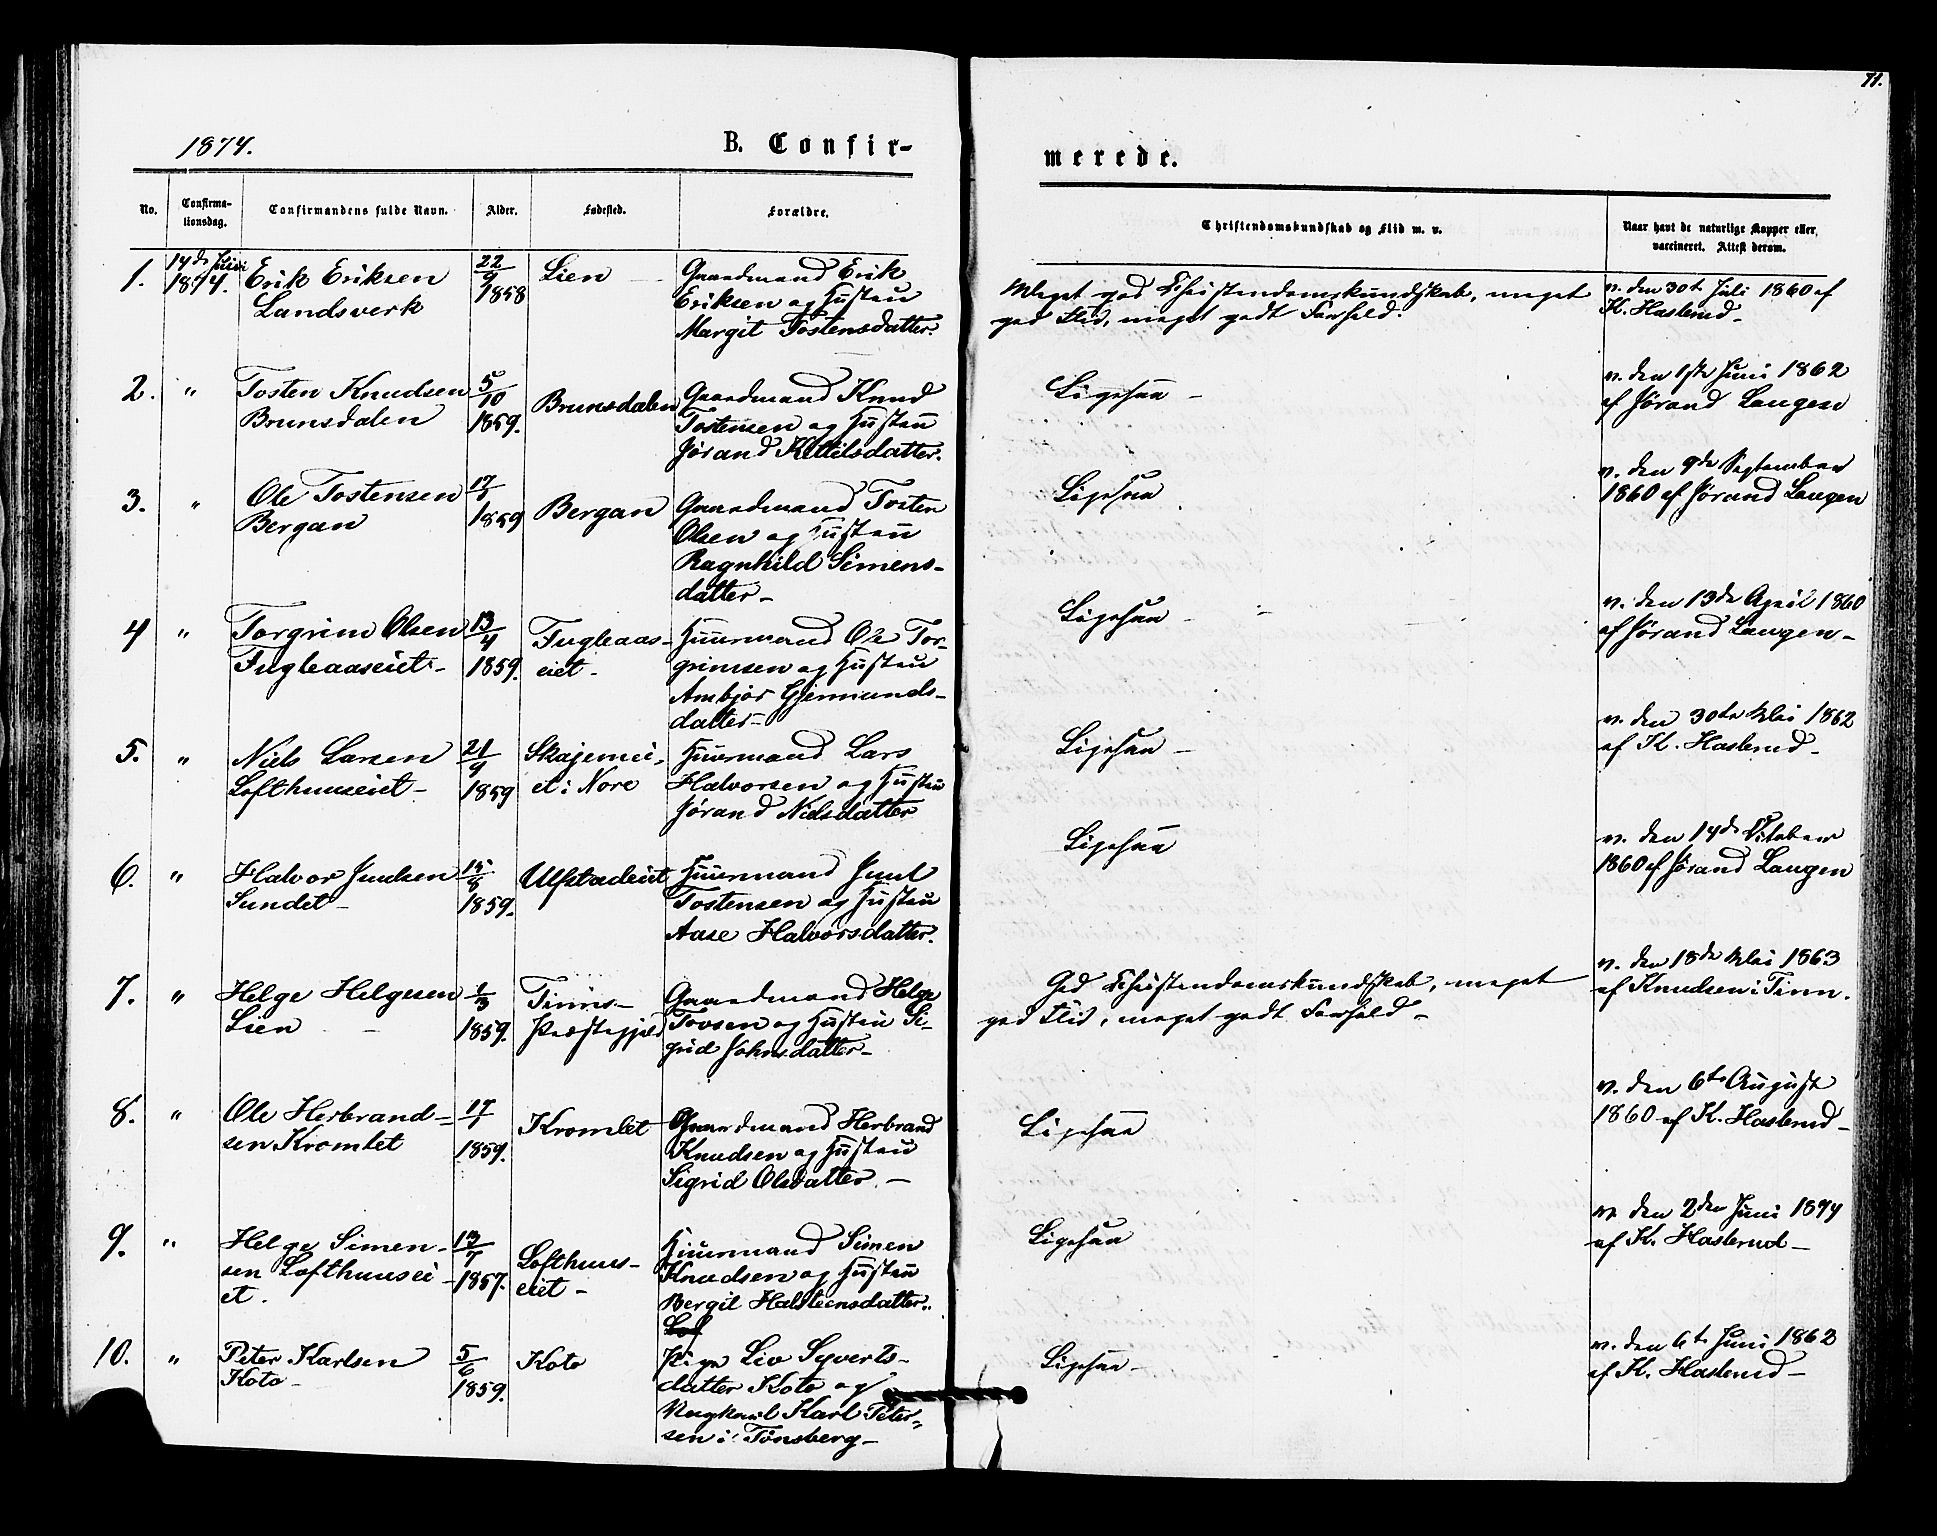 71.
1874.
B. Confir-
merede.
No.
Confirma-
tionsdag.
Confirmandens fulde Navn.
Alder.
Fødested.
Forældre.
Christendomskundskab og Flid m. v.
Naar havt de naturlige Kopper eller,
vaccineret. Attest derom.
1.
14de Juni
1874.
Erik Eriksen
Landsverk
22/9
1858
Lien
Gaardmand Erik
Eriksen og Hustru
Margit Tostensdatter.
Meget god Christendomskundskab, meget
god Flid, meget godt Forhold.
v. den 30te Juli 1860 af
K. Haslerud
2.
"
Tosten Knudsen
Brunsdalen
5/10
1859.
Brunsdalen
Gaardmand Knud
Tostensen og Hustru
Jørand Kittilsdatter.
Ligesaa
v. den 1ste Juni 1862
af Jørand Laugen
3.
"
Ole Tostensen
Bergan
17/1
1859
Bergan
Gaardmand Tosten
Olsen og Hustru
Ragnhild Simens-
datter
Ligesaa
v. den 9de September
1860 af Jørand Laugen
4
"
Torgrim Olsen
Fugleaaseiet
13/4
1859.
Fugleaas-
eiet
Huusmand Ole Tor-
grimsen og Hustru
Ambjør Gjermunds-
datter
Ligesaa
v. den 13de April 1860
af Jørand Laugen
5.
"
Niels Larsen
Lofthuuseiet
21/9
1859
et i Nore
Huusmand Lars
Halvorsen og Hustru
Jørand Nielsdatter
Ligesaa
v. den 30te Mai 1862
af K. Haslerud
6.
"
Halvor Juulsen
Sundet
15/8
1859.
Ulfstadeiet
Huusmand Juul
Tostensen og Hustru
Aase Halvorsdatter.
Ligesaa
v. den 14de October
1860 af Jørand Laugen
7.
"
Helge Helgesen
Lien
1/3
1859.
Tinns
Præstegjeld
Gaardmand Helge
Tovsen og Hustru Si-
grid Johnsdatter
God Christendomskundskab, meget
god Flid, meget godt Forhold
v. den 18de Mai 1863
af Knudsen i Tinn.
8.
"
Ole Herbrand-
sen Kromlet
17/1
1859.
Kromlet
Gaardmand Herbrand
Knudsen og Hustru
Sigrid Olsdatter.
Ligesaa
v. den 6te August
1860 af K. Haslerud
9.
"
Helge Simen-
sen Lofthuusei
et.
13/7
1857.
Lofthuus-
eiet
Huusmand Simen
Knudsen og Hustru
Bergit Halsteensdatter.
Ligesaa
v. den 2den Juni 1874
af K. Haslerud
10.
"
Peter Karlsen
Koto
5/6
1859.
Koto
Pige Liv Syverts-
datter Koto og
Ungkarl Karl Peter-
sen i Tønsberg
Ligesaa
v. den 6te Juni 1862
af K. Haslerud